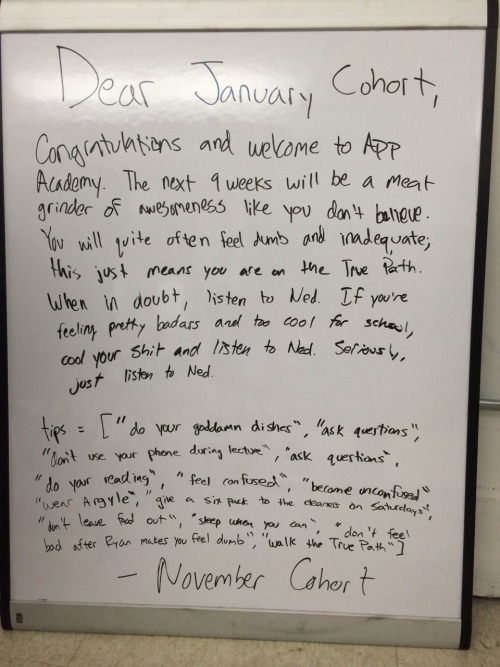 Dear January Cohort,
Congratulations and welcome to App
Academy. The next 9 weeks will be a meat
grinder of awesomeness like you don't believe.
You will quite often feel dumb and inadequate;
this just means you are on the True Path.
When in doubt, listen to Ned. If you're
feeling pretty badass and too cool for school,
cool your shit and listen to Ned. Seriously,
just listen to Ned.
tips = ["do your goddamn dishes", "ask questions",
"don't use your phone during lecture", "ask questions",
"do your reading", "feel confused", "become unconfused"
"wear Argyle", "give a six pack to the cleaners on Saturdays",
"don't leave food out", "sleep when you can", "don't feel
bad after Ryan makes you feel dumb", "walk the True Path"]
- November Cohort